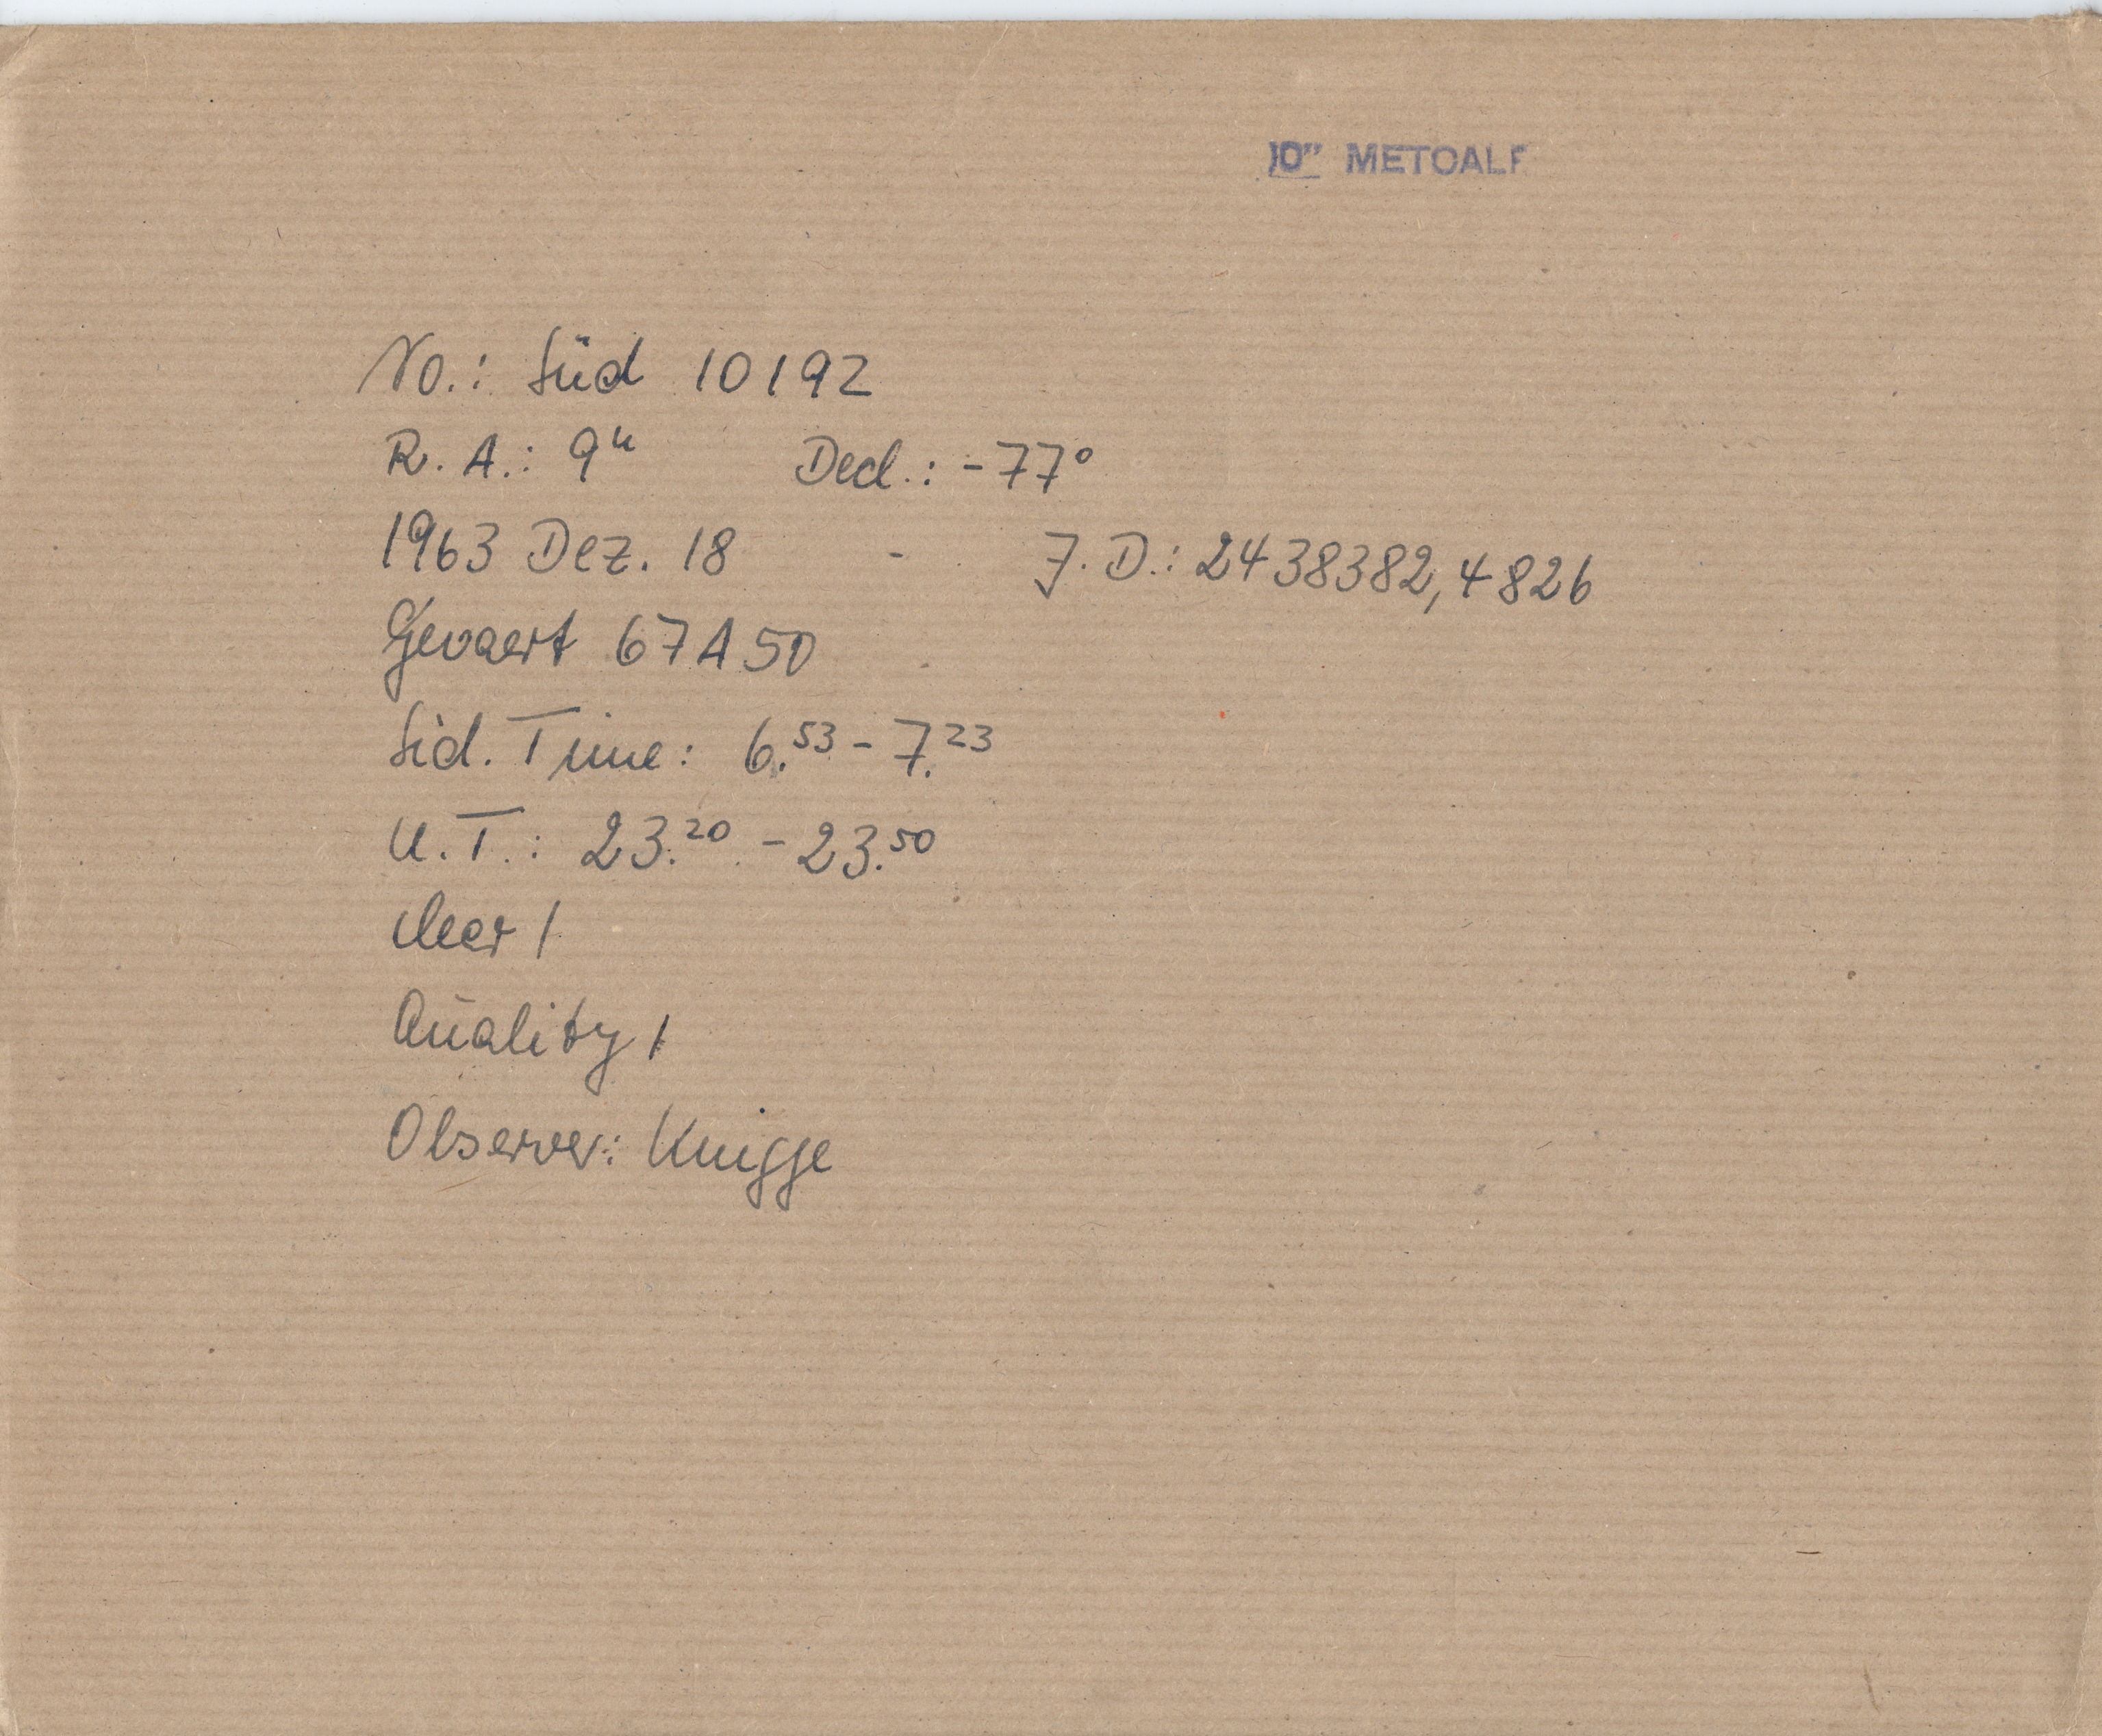 10" METCALF
No.: Süd 10192
R. A.: 9ʰ Decl.: -77°
1963 Dez. 18 - J. D.: 2438382,4826
Gevaert 67A50
Sid. Time: 6.⁵³ - 7.²³
U. T.: 23.²⁰ - 23.⁵⁰
clear 1
Quality 1
Observer: Knigge